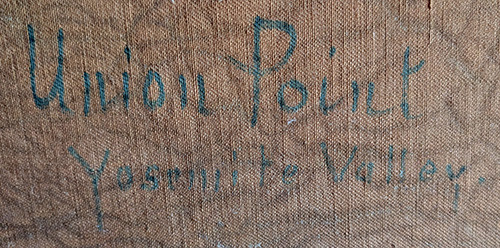 Union Point
Yosemite Valley.